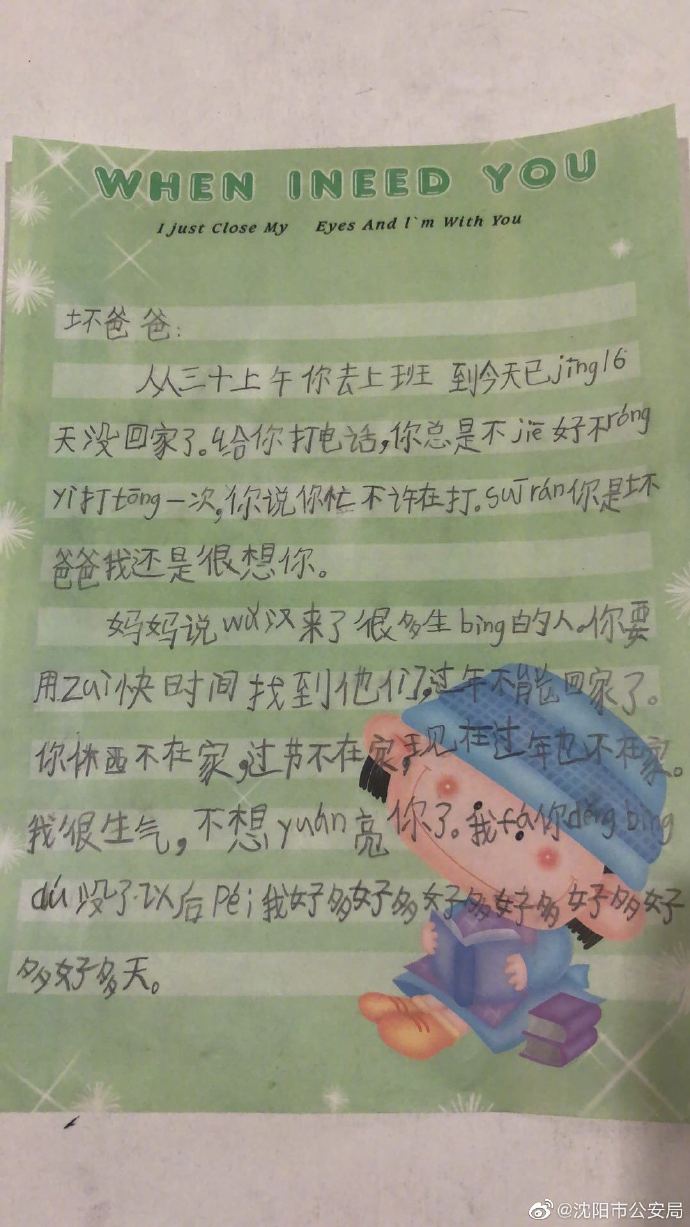 WHEN INEED YOU
I just Close My Eyes And I`m With You
坏爸爸:
从三十上午你去上班 到今天已jīng16
天没回家了。给你打电话,你总是不jiē好不róng
yì打tōng一次,你说你忙不许在打。suīrán你是坏
爸爸我还是很想你。
妈妈说wǔ汉来了很多生bìng的人。你要
用zuì快时间找到他们,过年不能回家了。
你休西不在家,过节不在家,现在过年也不在家。
我很生气,不想yuán亮你了。我fá你děng bìng
dú 没了.以后péi我好多好多好多好多好多好
多好多天。
@沈阳市公安局